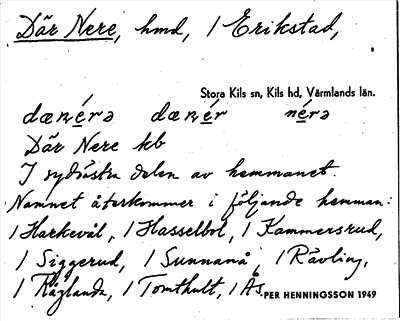 Där Nere, hmd, / Erikstad,
Stora Kils sn, Kils hd, Värmlands län.
dænérə dænér nérə
Där Nere kb
I sydöstra delen av hemmanet.
Namnet återkommer i följande hemman:
/ Harkevål, / Hasselbol, / Kammersrud,
/ Siggerud, / Sunnanå, / Råvling,
/ Råglanda, / Tomthult, / Ås.
PER HENNINGSSON 1949